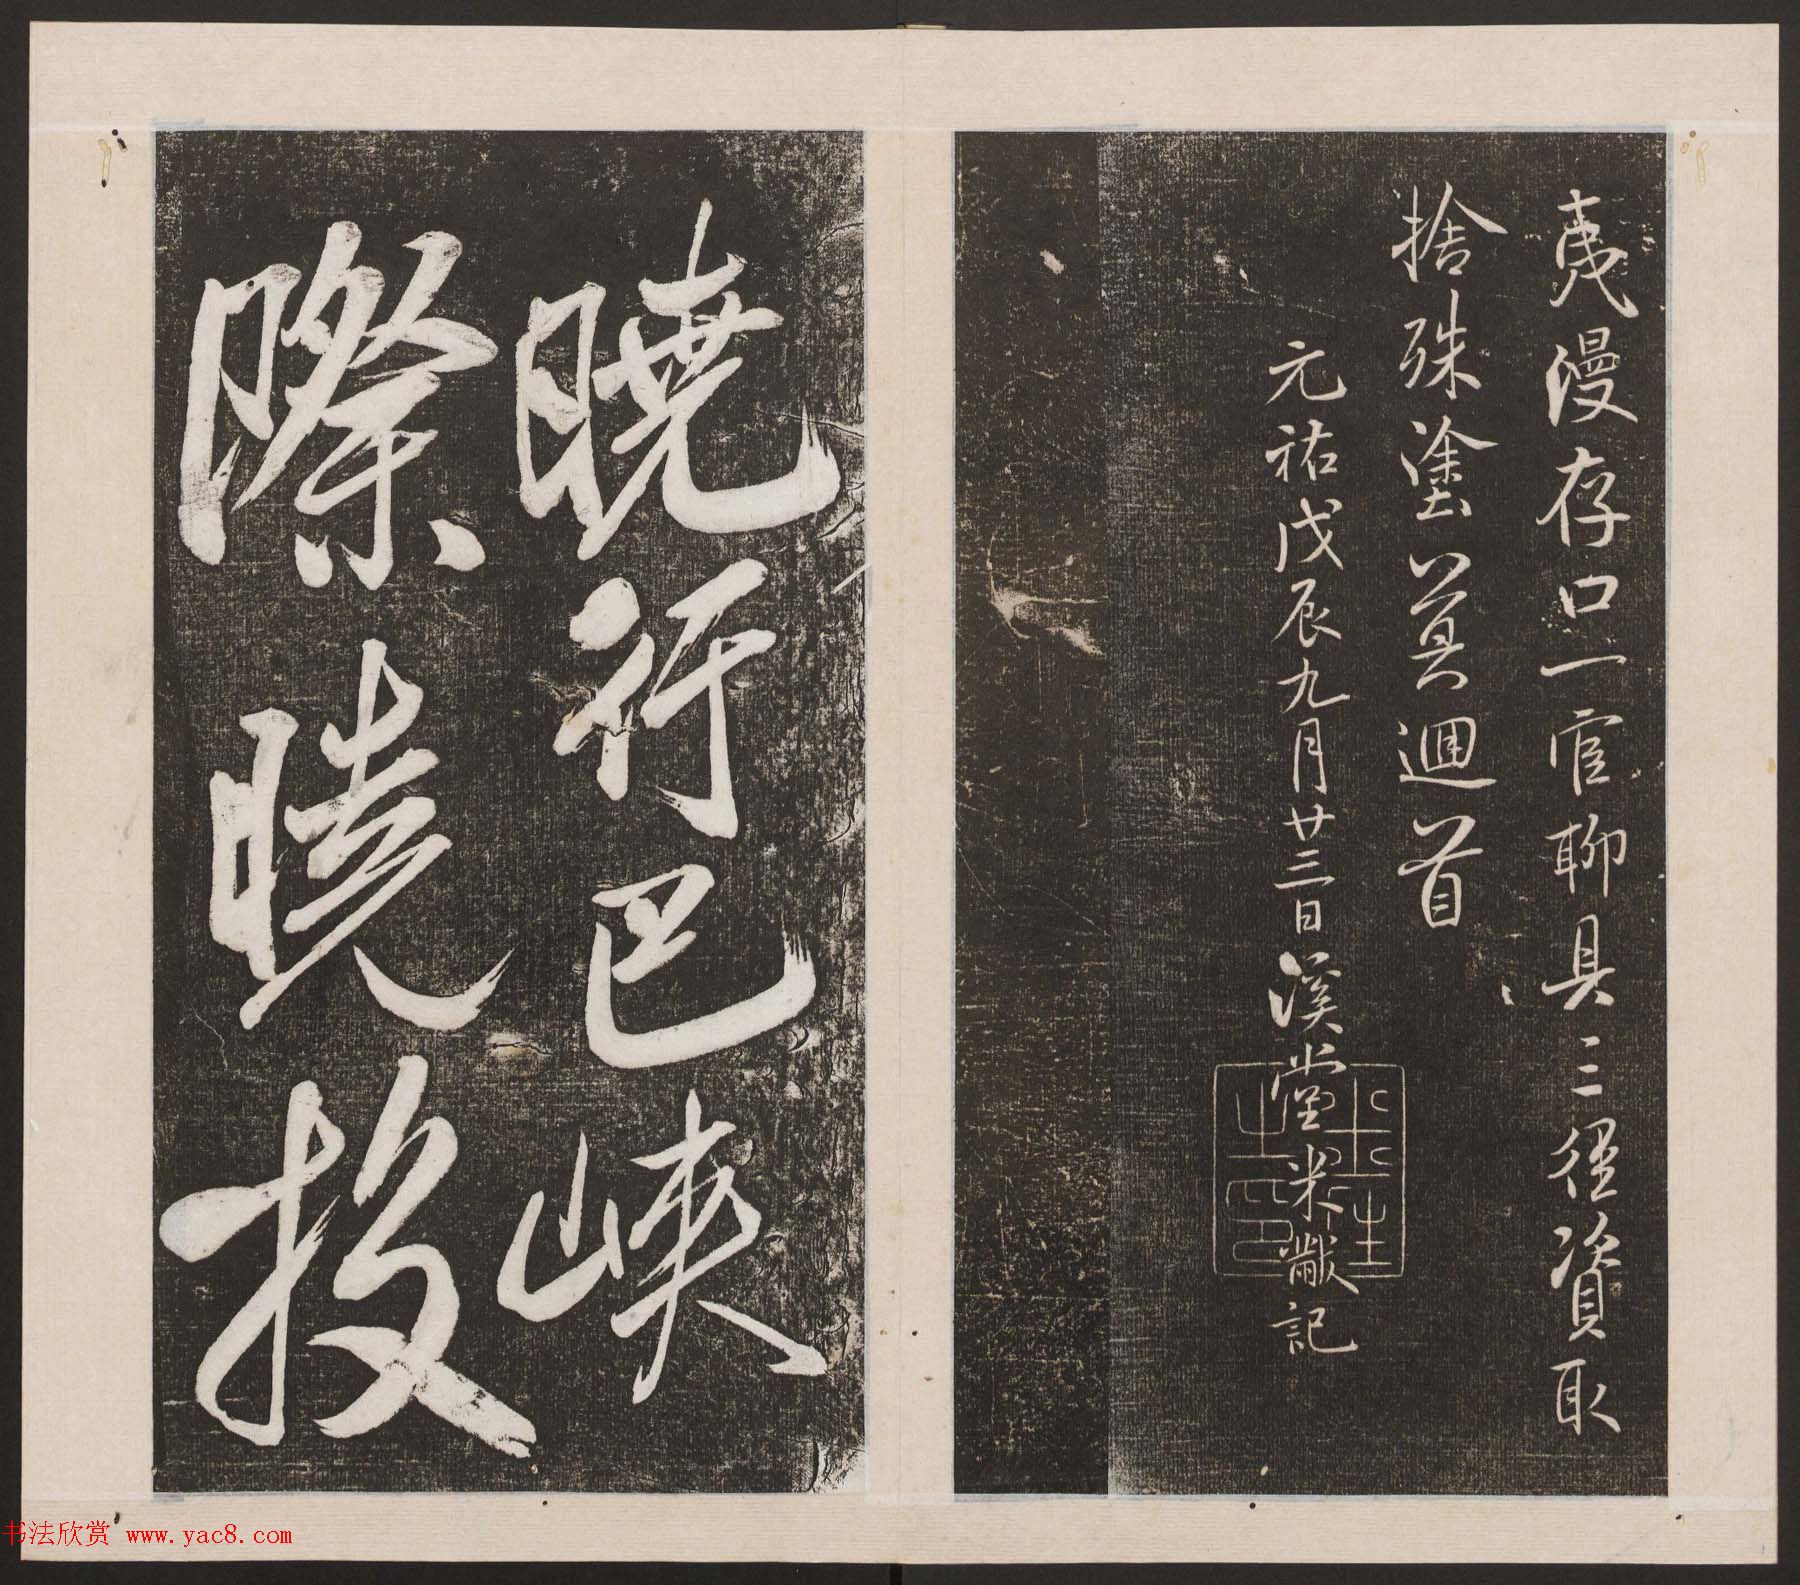 夷漫存口一官聊具三徑資取
捨殊塗莫迴首
元祐戊辰九月廿三日溪堂米黻記
曉行巴峽
際曉投
书法欣赏 www.yac8.com